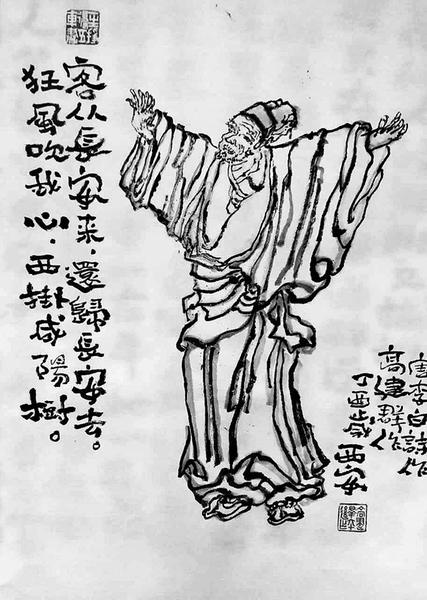 客从長安来，還歸長安去。
狂風吹我心，西掛咸陽樹。
唐李白詩作
高建群作
丁酉歲 西安